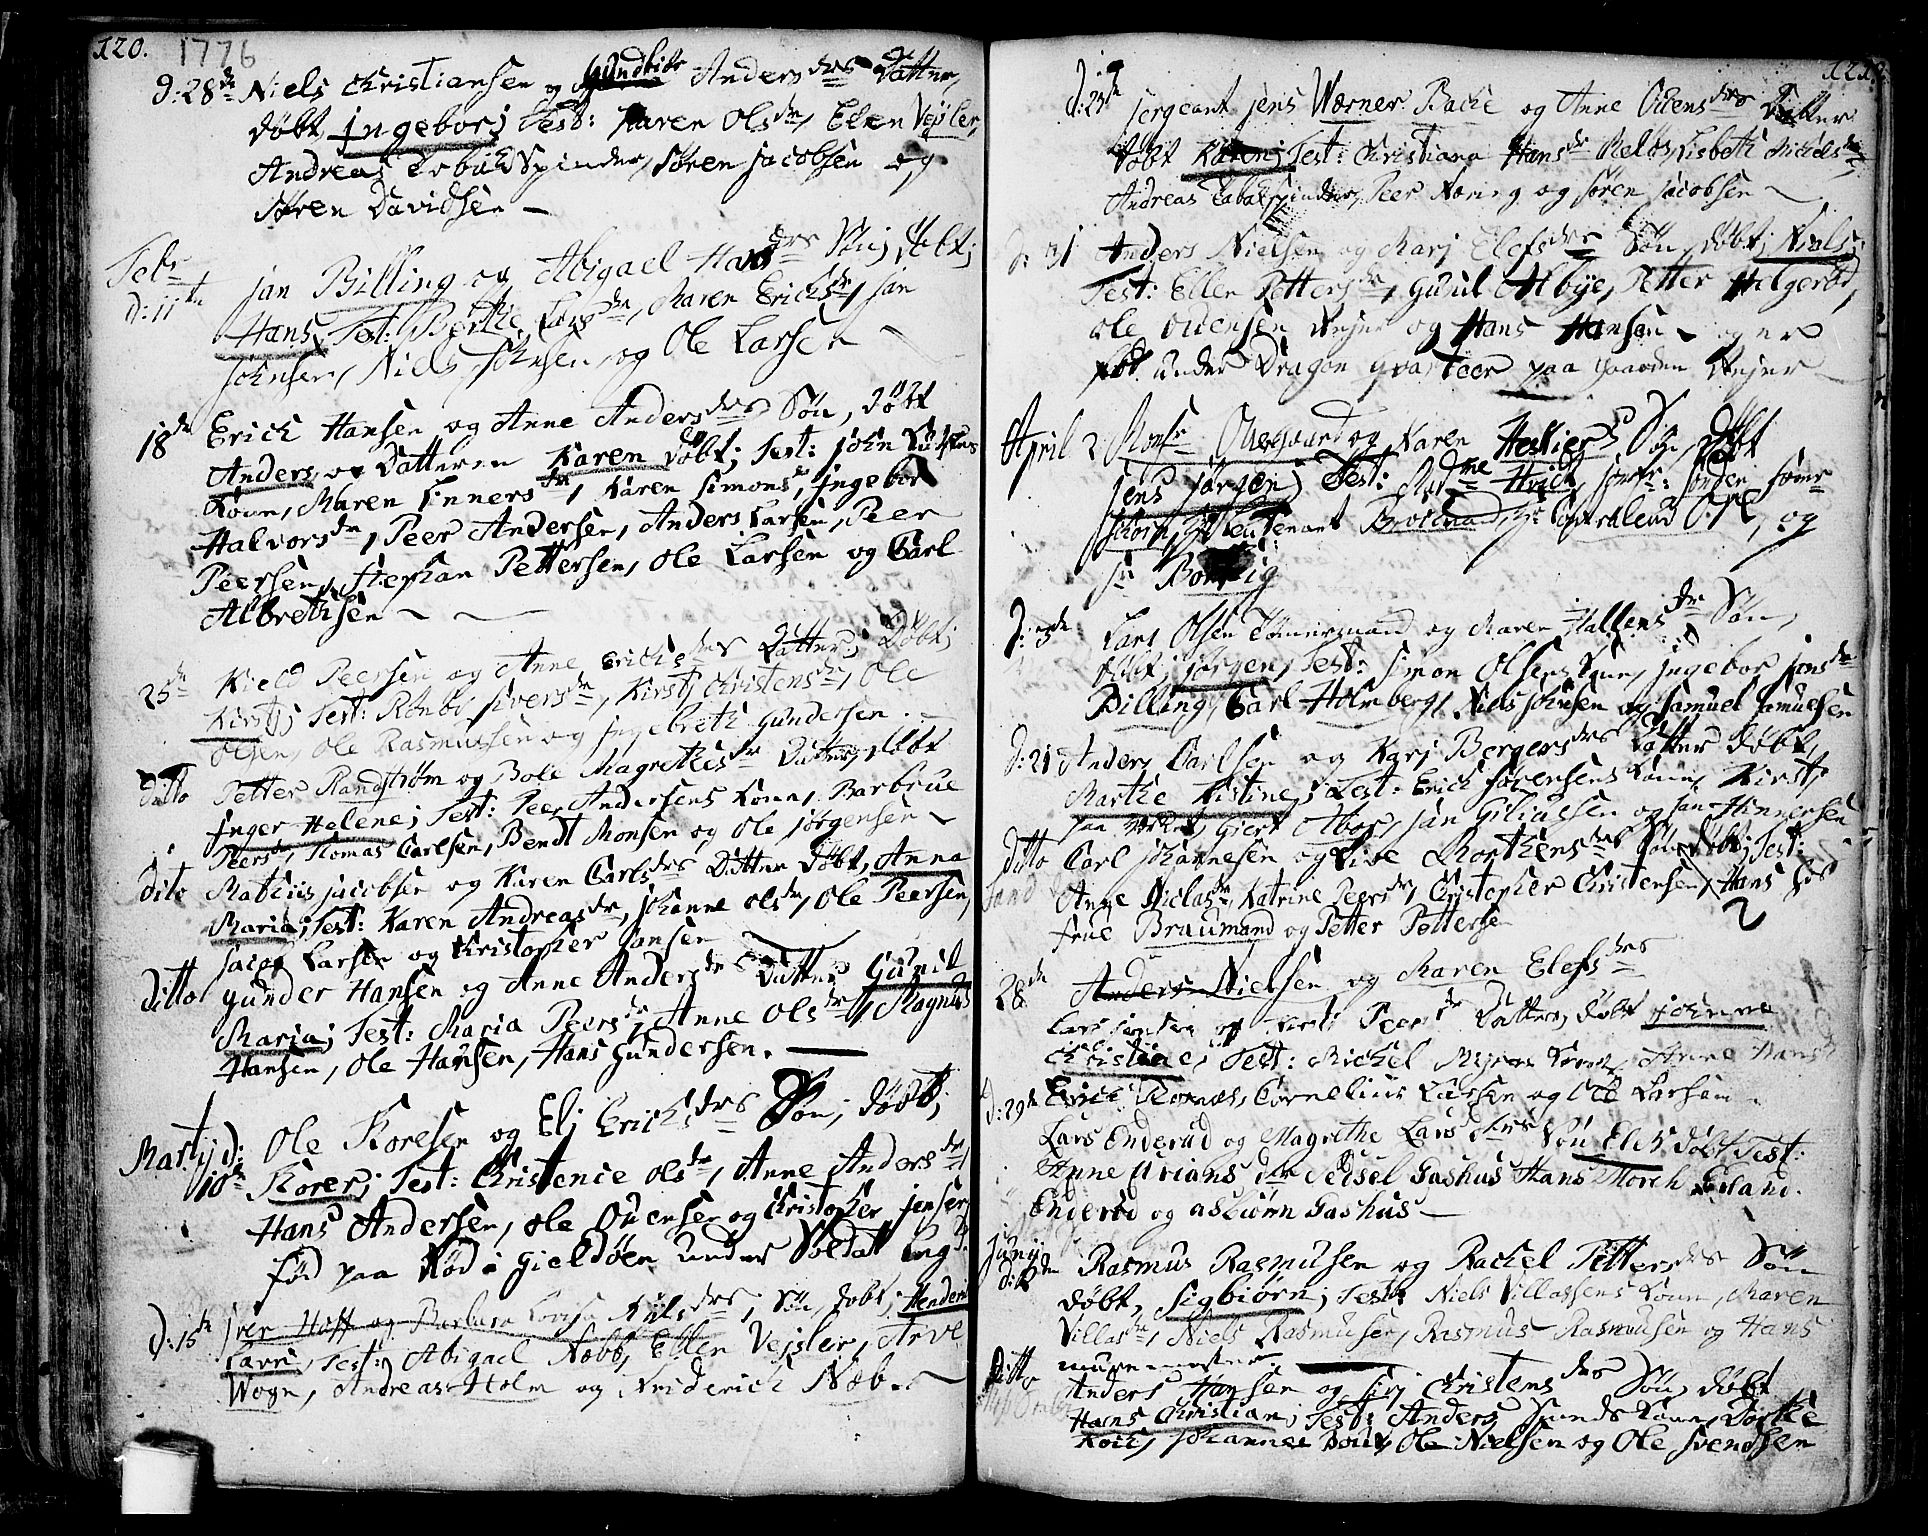 120. 1776
d: 28de Niels Christiansen og Gundbior Anders drs Datter,
døbt Ingebor; Test: Karen Olsdr, Elen Vejsler,
Andreas Tobakspinder, Søren Jacobsen og
Søren Davidsen
Febr
d: 11te Jan Billing og Abigael Hans drs Søn; døbt;
Hans, Test: Berthe Larsdr, Maren Erichsdr, Jan
Johnsen, Niels Johnsen, og Ole Larsen
18de Erich Hansen og Anne Anders drs Søn, døbt
Anders og Datteren Karen døbt; Test: John
Kone, Maren Ennersdr, Karen Simonsdr, Ingebor
Halvorsdr, Peer Andersen, Anders Larsen, Peer
Peersen, Stephan Pettersen, Ole Larsen og Carl
Albrethsen
25de Kield Peersen og Anne Erichs drs Datter; Døbt;
Kirstj; Test: Rønbj Siversdr, Kirstj Christensdr, Ole
Olsen, Ole Rasmussen og Ingebreth Gundersen
ditto Petter Randstrøm og Bole Magrethesdr Datter, døbt
Inger Helene; Test: Peer Andersens Kone, Barbrue
Peersdr, Thomas Carlsen, Bendt Monsen og Ole Jørgensen
dito Mathiis Jacobsen og Karen Carls drs Datter døbt, Anna
Maria; Test: Karen Andreasdr, Johanne Olsdr, Ole Peersen,
Jacob Larsen og Christopher Jansen
ditto Gunder Hansen og Anne Andersdr Datter Gunil
Maria; Test: Maria Peersdr, Anne Olsdr, Magnus
Hansen, Ole Hansen, Hans Gundersen.
Martij d: Ole Thoresen og Elj Erichs drs Søn; døbt;
10de Thorer; Test: Christence Olsdr, Anne Andersdr,
Hans Andersen, Ole Ouensen og Christopher Jensen
fød paa Rød i Gieldøen under Soldat Lægd
d: 15de Iver Hoff og Barbara Lovise Niels drs, Søn, døbt; Henderi
Lavri, Test: Abigael Næbb, Ellen Vejsler, Arve
Wogn, Andreas Holm og Friderich Næb.
121.
d: 25de Sergeant Jens Wærner Bache og Anne Ouens drs Datter
døbt Karen; Test: Christiana Hansdr Meløs, Lisbeth Michelsdr
Andreas Tabakspinder, Peer Noring og Søren Jacobsen
d: 31 Anders Nielsen og Marj Elefs drs Søn døbt; Niels;
Test: Ellen Pettersdr, Guul Albye, Petter Helgerød,
Ole Ouensen Vejer og Hans Hansen og er
føt under Dragon qvarteer paa Gaarden Vejer
April 2 Monsr Ouergaard og Karen Heskiers Søn Døbt
Jens Jørgen; Test: Madme Hvid, Jomfr: Jorden Jomfr
Chorn, Leutenant Brosmand, og
Sr Bomnig
d: 3de Lars Olsen Tømmermand og Maren Hallensdr Søn,
døbt; Jørgen, Test: Simon Olsens Kone, Ingebor Jensdr
Billing, Carl Holmberg, Niels Johnsen og Samuel Samuelsen
d: 21 Anders Carlsen og Karj Bergers drs Datter døbt,
Marthe Kistine; Test: Erich Sørensens Kone, Kirstj
Giert Aboe, Jan Giliussen og Jan Hinnersen
ditto Carl Johannesen og Live Morthens drs Søn døbt; Test:
Anne Niclasdr, Katrine Peersdr, Christopher Christensen, Hans
Frue Braumand og Petter Pettersen
28de Anders Nielsen og Maren Elefs drs
Lars Jansen og Peersdr Datter, døbt Johanne
Christine; Test: Michel Myrens Kone, Anne Hansdr
Erich Thornæs, Cornelius Larsen og Ole Larsen
d: 29de
Lars Enderød og Magrethe Lars drs Søn Elek døbt Test:
Anne Urians dr Seissel Gashus Hans Morck Erland.
Enderød og Asbiørn Gashus
Junij
d: 2den Rasmus Rasmusen og Rachel Petters drs Søn
døbt, Sigbiørn; Test: Niels Villassens Kone, Maren
Villasdr, Niels Rasmusen, Rasmus Rasmusen og Hans
muremester.
Ditto Anders Hansen og Sirj Christens drs Søn døbt
Hans Christian; Test: Anders Sunds Kone, Dorthe
Koch, Johannes Bout, Ole Nielsen og Ole Svendsen